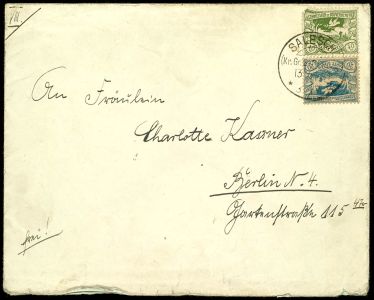 An Fräulein
Charlotte Kasner
Berlin N. 4.
Gartenstraße 115
frei!
SALESC
(Kr. Gr.
13